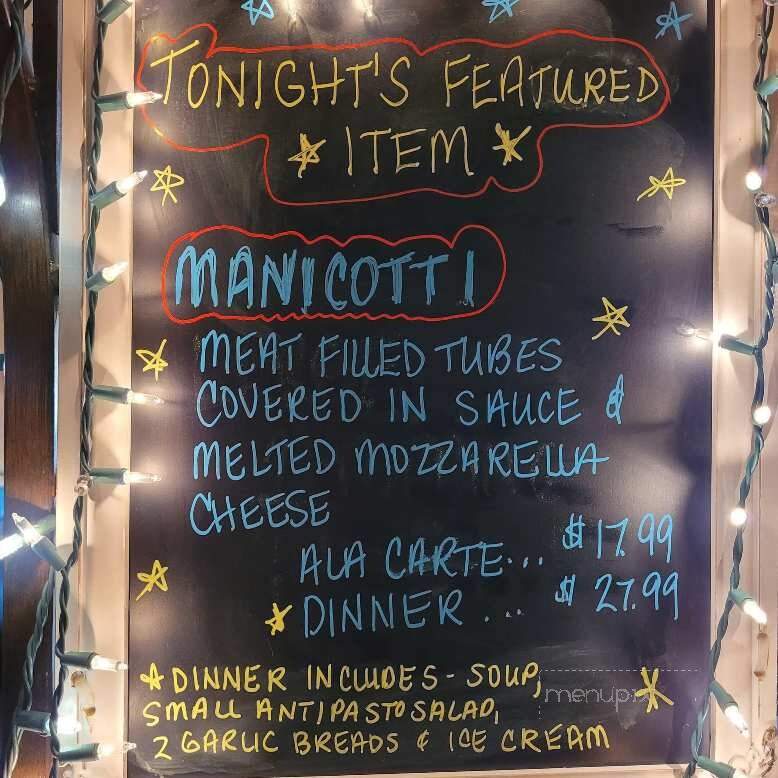 TONIGHT'S FEATURED
ITEM
MANICOTTI
MEAT FILLED TUBES
COVERED IN SAUCE &
MELTED MOZZARELLA
CHEESE
ALA CARTE... $17.99
DINNER... $27.99
DINNER INCLUDES - SOUP,
SMALL ANTIPASTO SALAD,
2 GARLIC BREADS & ICE CREAM
menupix